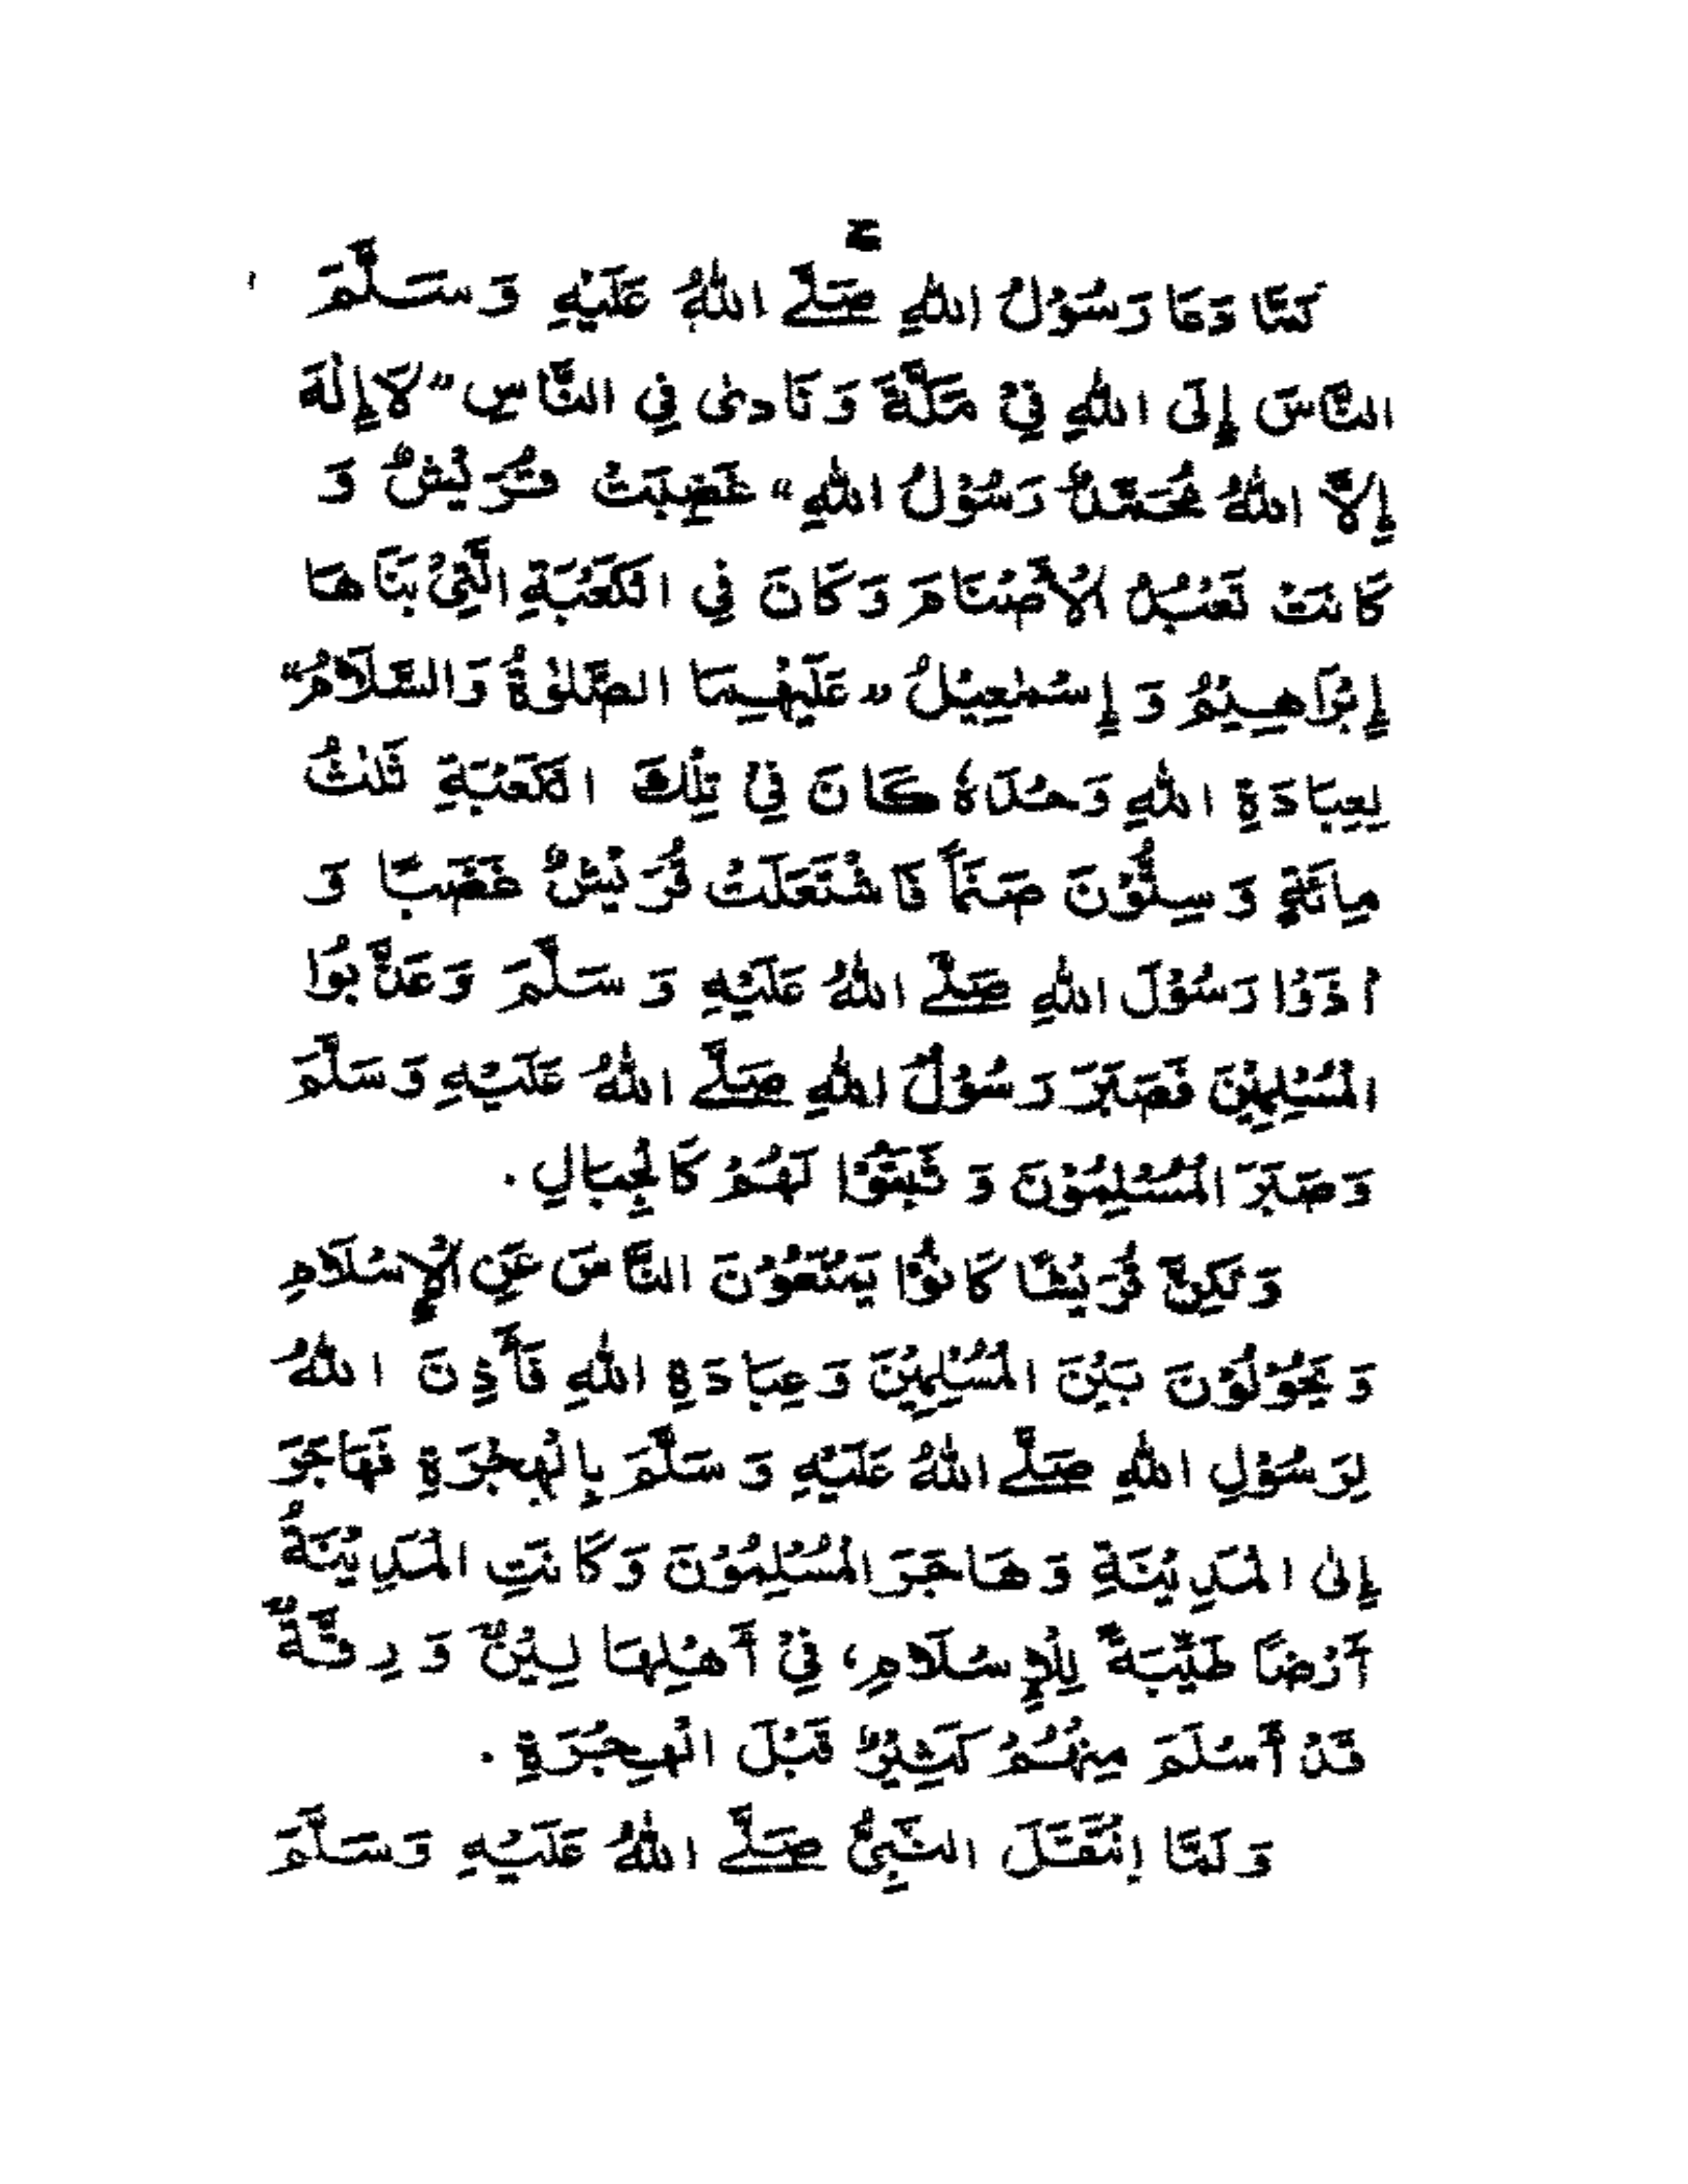 لَمَّا دَعَا رَسُوْلُ اللهِ صَلَّے اللهُ عَلَيْهِ وَسَلَّمَ
النَّاسَ إِلَى اللهِ فِيْ مَكَّةَ وَنَادىٰ فِي النَّاسِ "لَا إِلٰهَ
إِلاَّ اللهُ مُحَمَّدٌ رَسُوْلُ اللهِ" غَضِبَتْ قُرَيْشٌ وَ
كَانَتْ تَعْبُدُ الْأَصْنَامَ وَكَانَ فِي الْكَعْبَةِ الَّتِيْ بَنَاهَا
إِبْرَاهِيْمُ وَ إِسْمٰعِيْلُ "عَلَيْهِمَا الصَّلوٰةُ وَالسَّلَامُ"
لِعِبَادَةِ اللهِ وَحْدَهٗ كَانَ فِيْ تِلْكَ الْكَعْبَةِ ثَلٰثُ
مِائَةٍ وَ سِتُّوْنَ صَنَماً فَاشْتَعَلَتْ قُرَيْشٌ غَضَبًا وَ
اٰذَوْا رَسُوْلَ اللهِ صَلَّے اللهُ عَلَيْهِ وَ سَلَّمَ وَعَذَّبُوا
الْمُسْلِمِيْنَ فَصَبَرَ رَسُوْلُ اللهِ صَلَّے اللهُ عَلَيْهِ وَسَلَّمَ
وَصَبَرَ الْمُسْلِمُوْنَ وَ ثَبَتُوْا لَهُمْ كَالْجِبَالِ.
وَلٰكِنَّ قُرَيْشًا كَانُوْا يَمْنَعُوْنَ النَّاسَ عَنِ الْإِسْلَامِ
وَيَحُوْلُوْنَ بَيْنَ الْمُسْلِمِيْنَ وَعِبَادَةِ اللهِ فَأَذِنَ اللهُ
لِرَسُوْلِ اللهِ صَلَّے اللهُ عَلَيْهِ وَ سَلَّمَ بِالْهِجْرَةِ فَهَاجَرَ
إِلىٰ الْمَدِيْنَةِ وَهَاجَرَ الْمُسْلِمُوْنَ وَكَانَتِ الْمَدِيْنَةُ
أَرْضًا طَيِّبَةً لِلْإِسْلَامِ، فِيْ أَهْلِهَا لِيْنٌ وَ رِقَّةٌ
قَدْ أَسْلَمَ مِنْهُمْ كَثِيْرٌ قَبْلَ الْهِجْرَةِ.
وَلَمَّا اِنْتَقَلَ النَّبِيُّ صَلَّے اللهُ عَلَيْهِ وَسَلَّمَ